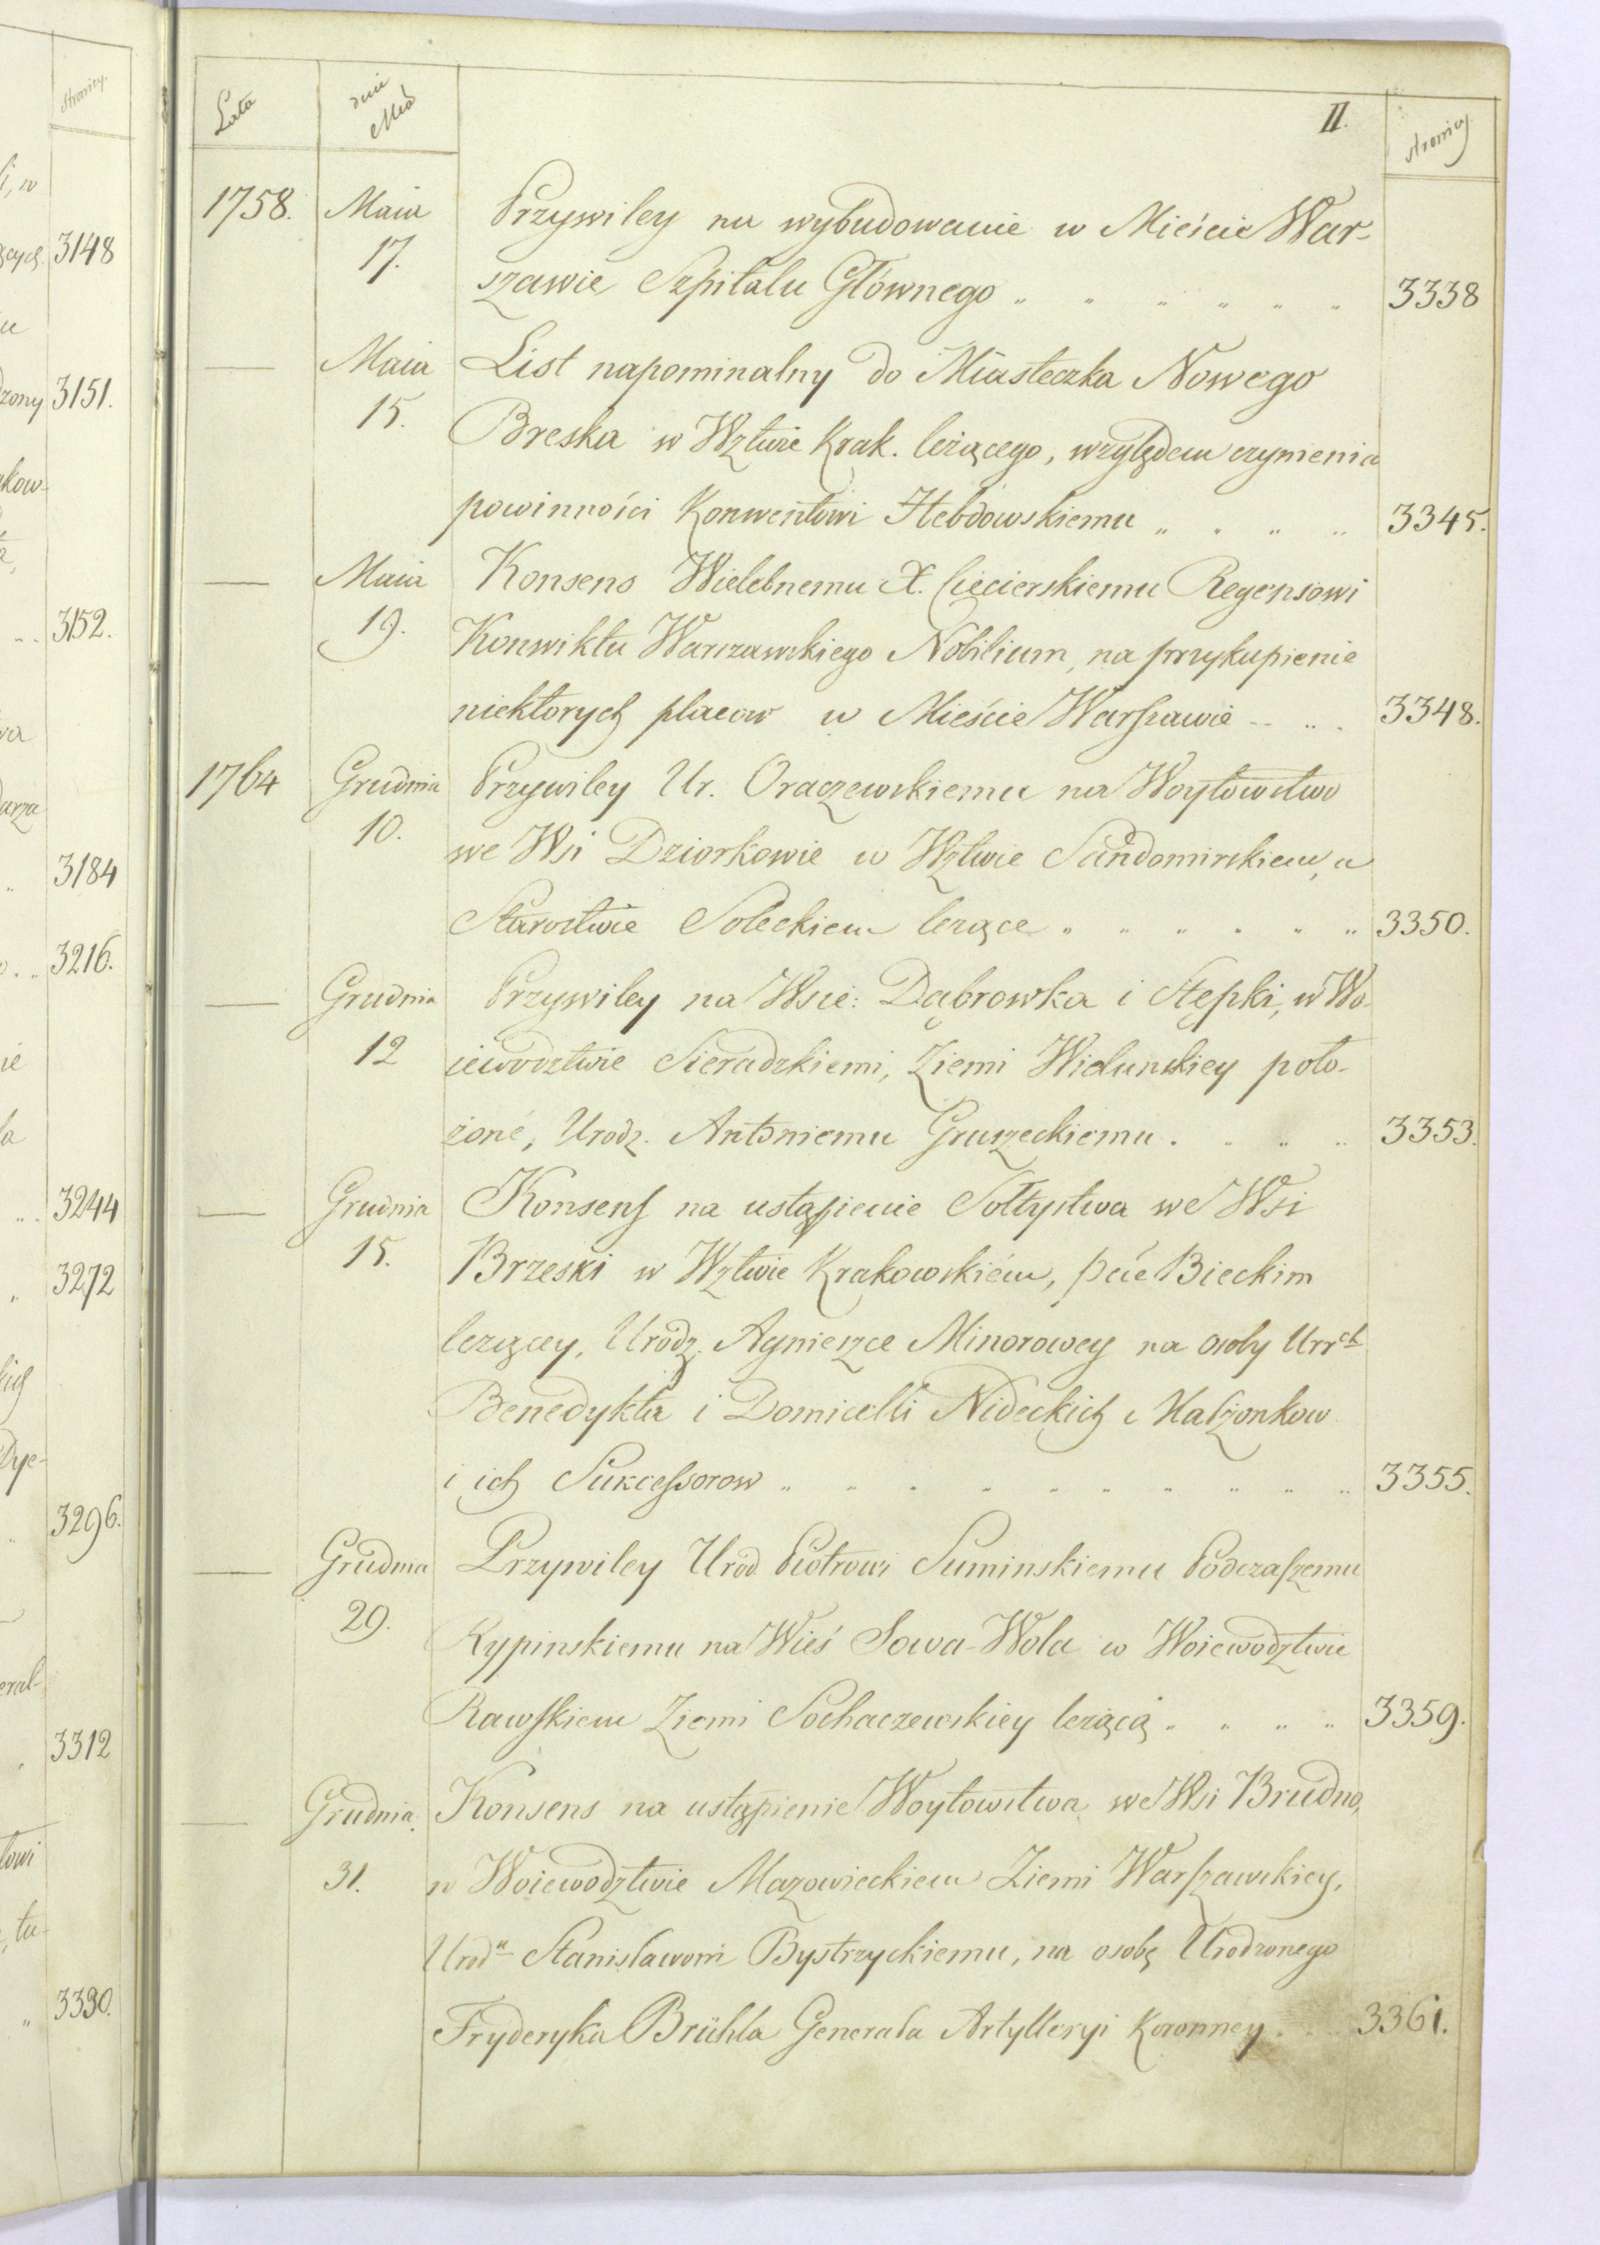 Stronicy
i, w
3148
u
dzony 3151.
kow-
3152.
wa
darza
3184
3216.
ie
la
3244
3272
kich
Dye-
3296.
eral-
3312
towi
, tu-
3330.
Lata
dnie
Mca
II.
stronicy
1758. Maia Przywiley na wybudowanie w Mieście War-
17. szawie Szpitalu Głównego 3338
— Maia List napominalny do Miasteczka Nowego
15. Breska w Wztwie Krak. leżącego, względem czynienia
powinności Konwentowi Hebdowskiemu 3345.
— Maia Konsens Wielebnemu X. Ciecierskiemu Regensowi
19. Konwiktu Warszawskiego Nobilium, na przykupienie
niektorych placow w Mieście Warszawie 3348.
1764 Grudnia Przywiley Ur. Oraczewskiemu na Woytowstwo
10. we Wsi Dziorkowie w Wztwie Sandomirskiem, a
Starostwie Soleckiem leżące 3350.
— Grudnia Przywiley na Wsie: Dąbrowka i Stępki, w Wo-
12 iewodztwie Sieradzkiemi, Ziemi Wielunskiey poło-
żone, Urodz. Antoniemu Gruszeckiemu. 3353.
— Grudnia Konsens na ustąpienie Sołtystwa we Wsi
15. Brzeski w Wztwie Krakowskiém, pcie Bieckim
leżącey, Urodz. Agnieszce Minorowey na osoby Urrch
Benedykta i Domicelli Nideckich Małżonkow
i ich Sukcessorow 3355.
— Grudnia Przywiley Urod. Piotrowi Suminskiemu Podczaszemu
29. Rypinskiemu na Wieś Sowa-Wola w Woiewodztwie
Rawskiem Ziemi Sochaczewskiey leżącą 3359.
— Grudnia Konsens na ustąpienie Woytowstwa we Wsi Brudno,
31. w Woiewodztwie Mazowieckiem Ziemi Warszawskiey,
Urodu Stanisławowi Bystrzyckiemu, na osobę Urodzonego
Fryderyka Brühla Generała Artylleryi Koronney 3361.